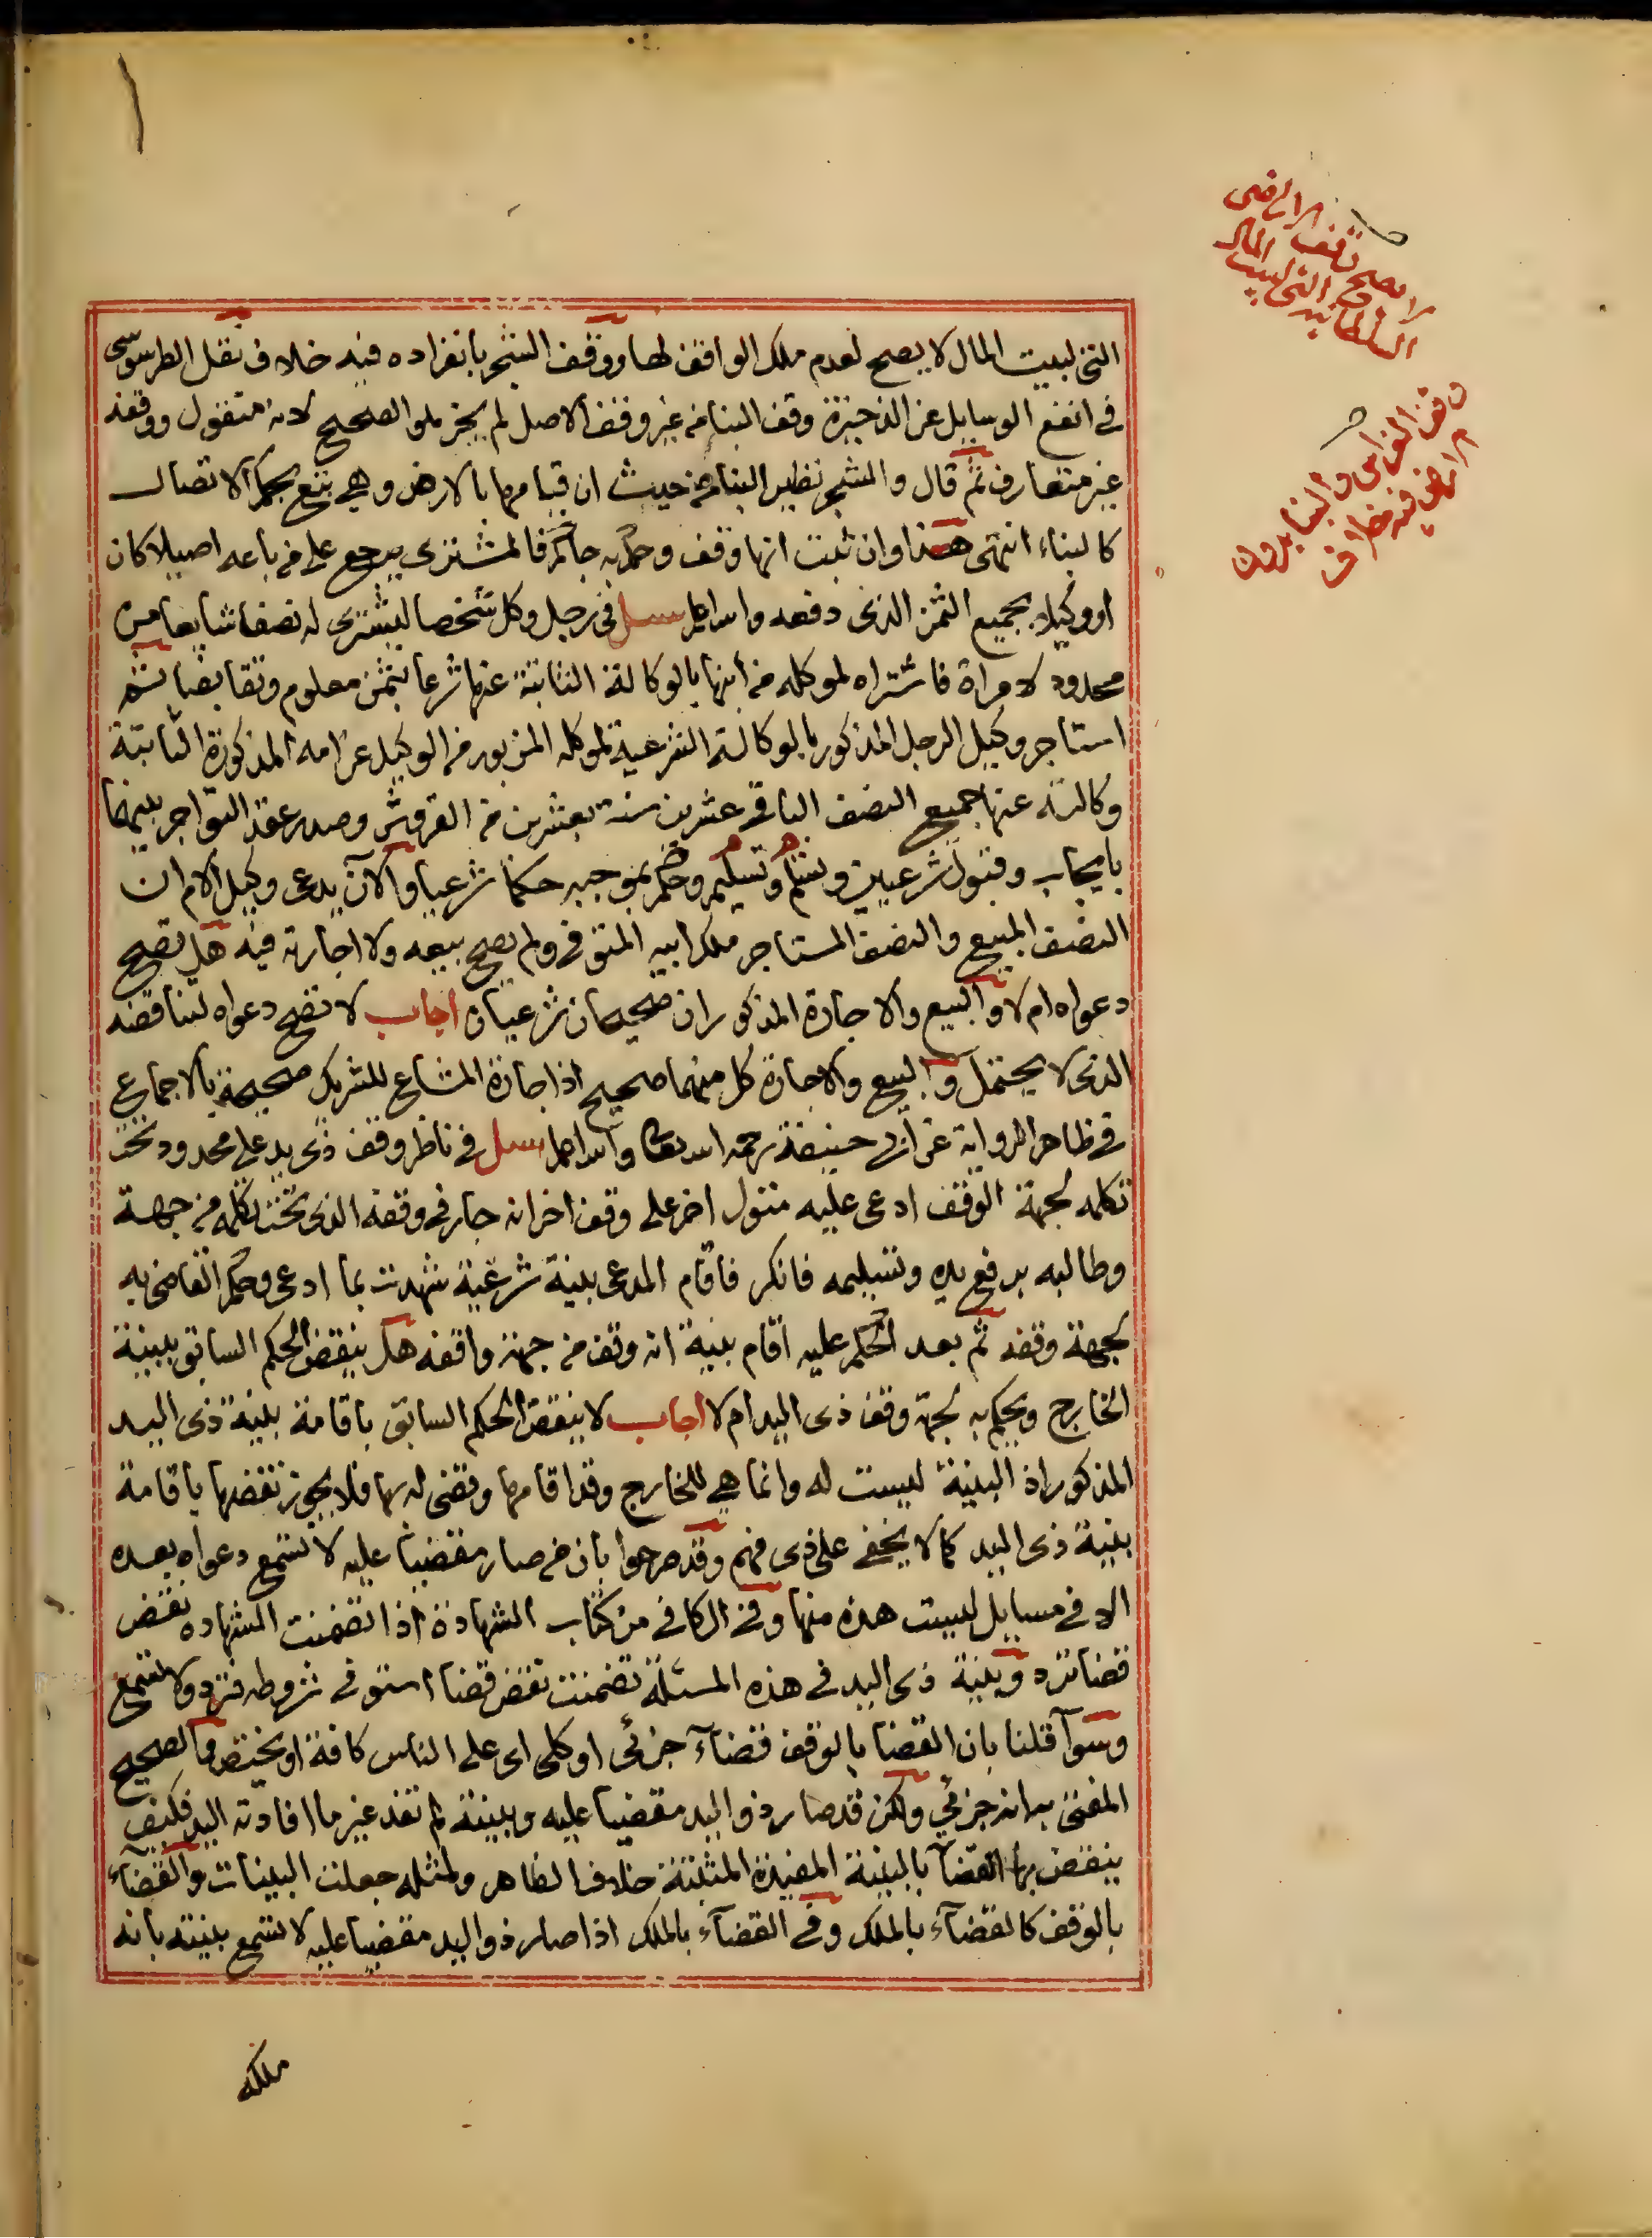 لا يصح وقف الاراضى
السلطانية التى لبيت المال
وقف الغراس والبناء بدون
الاراضى فيه خلاف
التى لبيت المال لا يصح لعدم ملك الواقف لها ووقف الشجر بانفراده فيه خلاف نقل الطرسوسى
فى انفع الوسايل عن الذخيرة وقف البناء من غير وقف الاصل لم يجز هو الصحيح لانه منقول ووقفه
غير متعارف ثم قال والشجر نظير البناء من حيث ان قيامها بالارض وهى تتبع بحكم الاتصال
كالبناء انتهى هذا وان ثبت انها وقف وحكم به حاكم فالمشترى يرجع على من باعه اصيلا كان
او وكيلا بجميع الثمن الذى دفعه والله اعلم سئل فى رجل وكل شخصا ليشترى له نصفا شايعا من
محدود لامراة فاشتراه لموكله من ابنها بالوكالة الثابتة عنها شرعا بثمن معلوم وتقابضا ثم
استاجر وكيل الرجل المذكور بالوكالة الشرعية لموكله المزبور من الوكيل عن امه المذكورة الثابتة
وكالته عنها جميع النصف الباقى عشرين سنة بعشرين من القروش وصدر عقد التواجر بينهما
بايجاب وقبول شرعيين وتسلم وتسليم وحكم بموجبه حكما شرعيا والآن يدعى وكيل الام ان
النصف المبيع والنصف المستاجر ملك ابيه المتوفى ولم يصح بيعه ولا اجارته فيه هل تصح
دعواه ام لا والبيع والاجارة المذكوران صحيحان شرعيان اجاب لا تصح دعواه لتناقضه
الذى لا يحتمل والبيع والاجارة كل منهما صحيح اذ اجارة المشاع للشريك صحيحة بالاجماع
فى ظاهر الرواية عن ابى حنيفة رحمه الله تعالى والله اعلم سئل فى ناظر وقف ذى يد على محدود تحت
تكلمه لجهة الوقف ادعى عليه متول اخر على وقف اخر انه جار فى وقفه الذى تحت تكلمه من جهة
وطالبه برفع يده وتسليمه فانكر فاقام المدعى بينة شرعية شهدت بما ادعى وحكم القاضى به
لجهة وقفه ثم بعد الحكم عليه اقام بينة انه وقف من جهة واقفه هل ينقض الحكم السابق ببينة
الخارج ويحكم به لجهة وقف ذى اليد ام لا اجاب لا ينقض الحكم السابق باقامة بينة ذى اليد
المذكور اذ البينة ليست له وانما هى للخارج وقد اقامها وقضى له بها فلا يجوز نقضها باقامة
بينة ذى اليد كما لا يخفى على ذى فهم وقد صرحوا بان من صار مقضيا عليه لا تسمع دعواه بعده
الا فى مسايل ليست هذه منها وفى الكافى من كتاب الشهادة اذا تضمنت الشهادة نقض
قضا ترد وبينة ذى اليد فى هذه المسئلة تضمنت نقض قضا استوفى شروطه فترد ولا تسمع
وسوآ قلنا بان القضا بالوقف قضاء جزئى او كلى اى على الناس كافة او يختص والصحيح
المفتى به انه جزئي ولكن قد صار ذو اليد مقضيا عليه وبينته لم تفد غير ما افادته اليد فكيف
ينقض بها القضآ بالبينة المفيدة المثبتة خلاف الظاهر ولمثله جعلت البينات والقضآء
بالوقف كالقضآء بالملك وفى القضآء بالملك اذا صار ذو اليد مقضيا عليه لا تسمع بينته بانه
ملكه